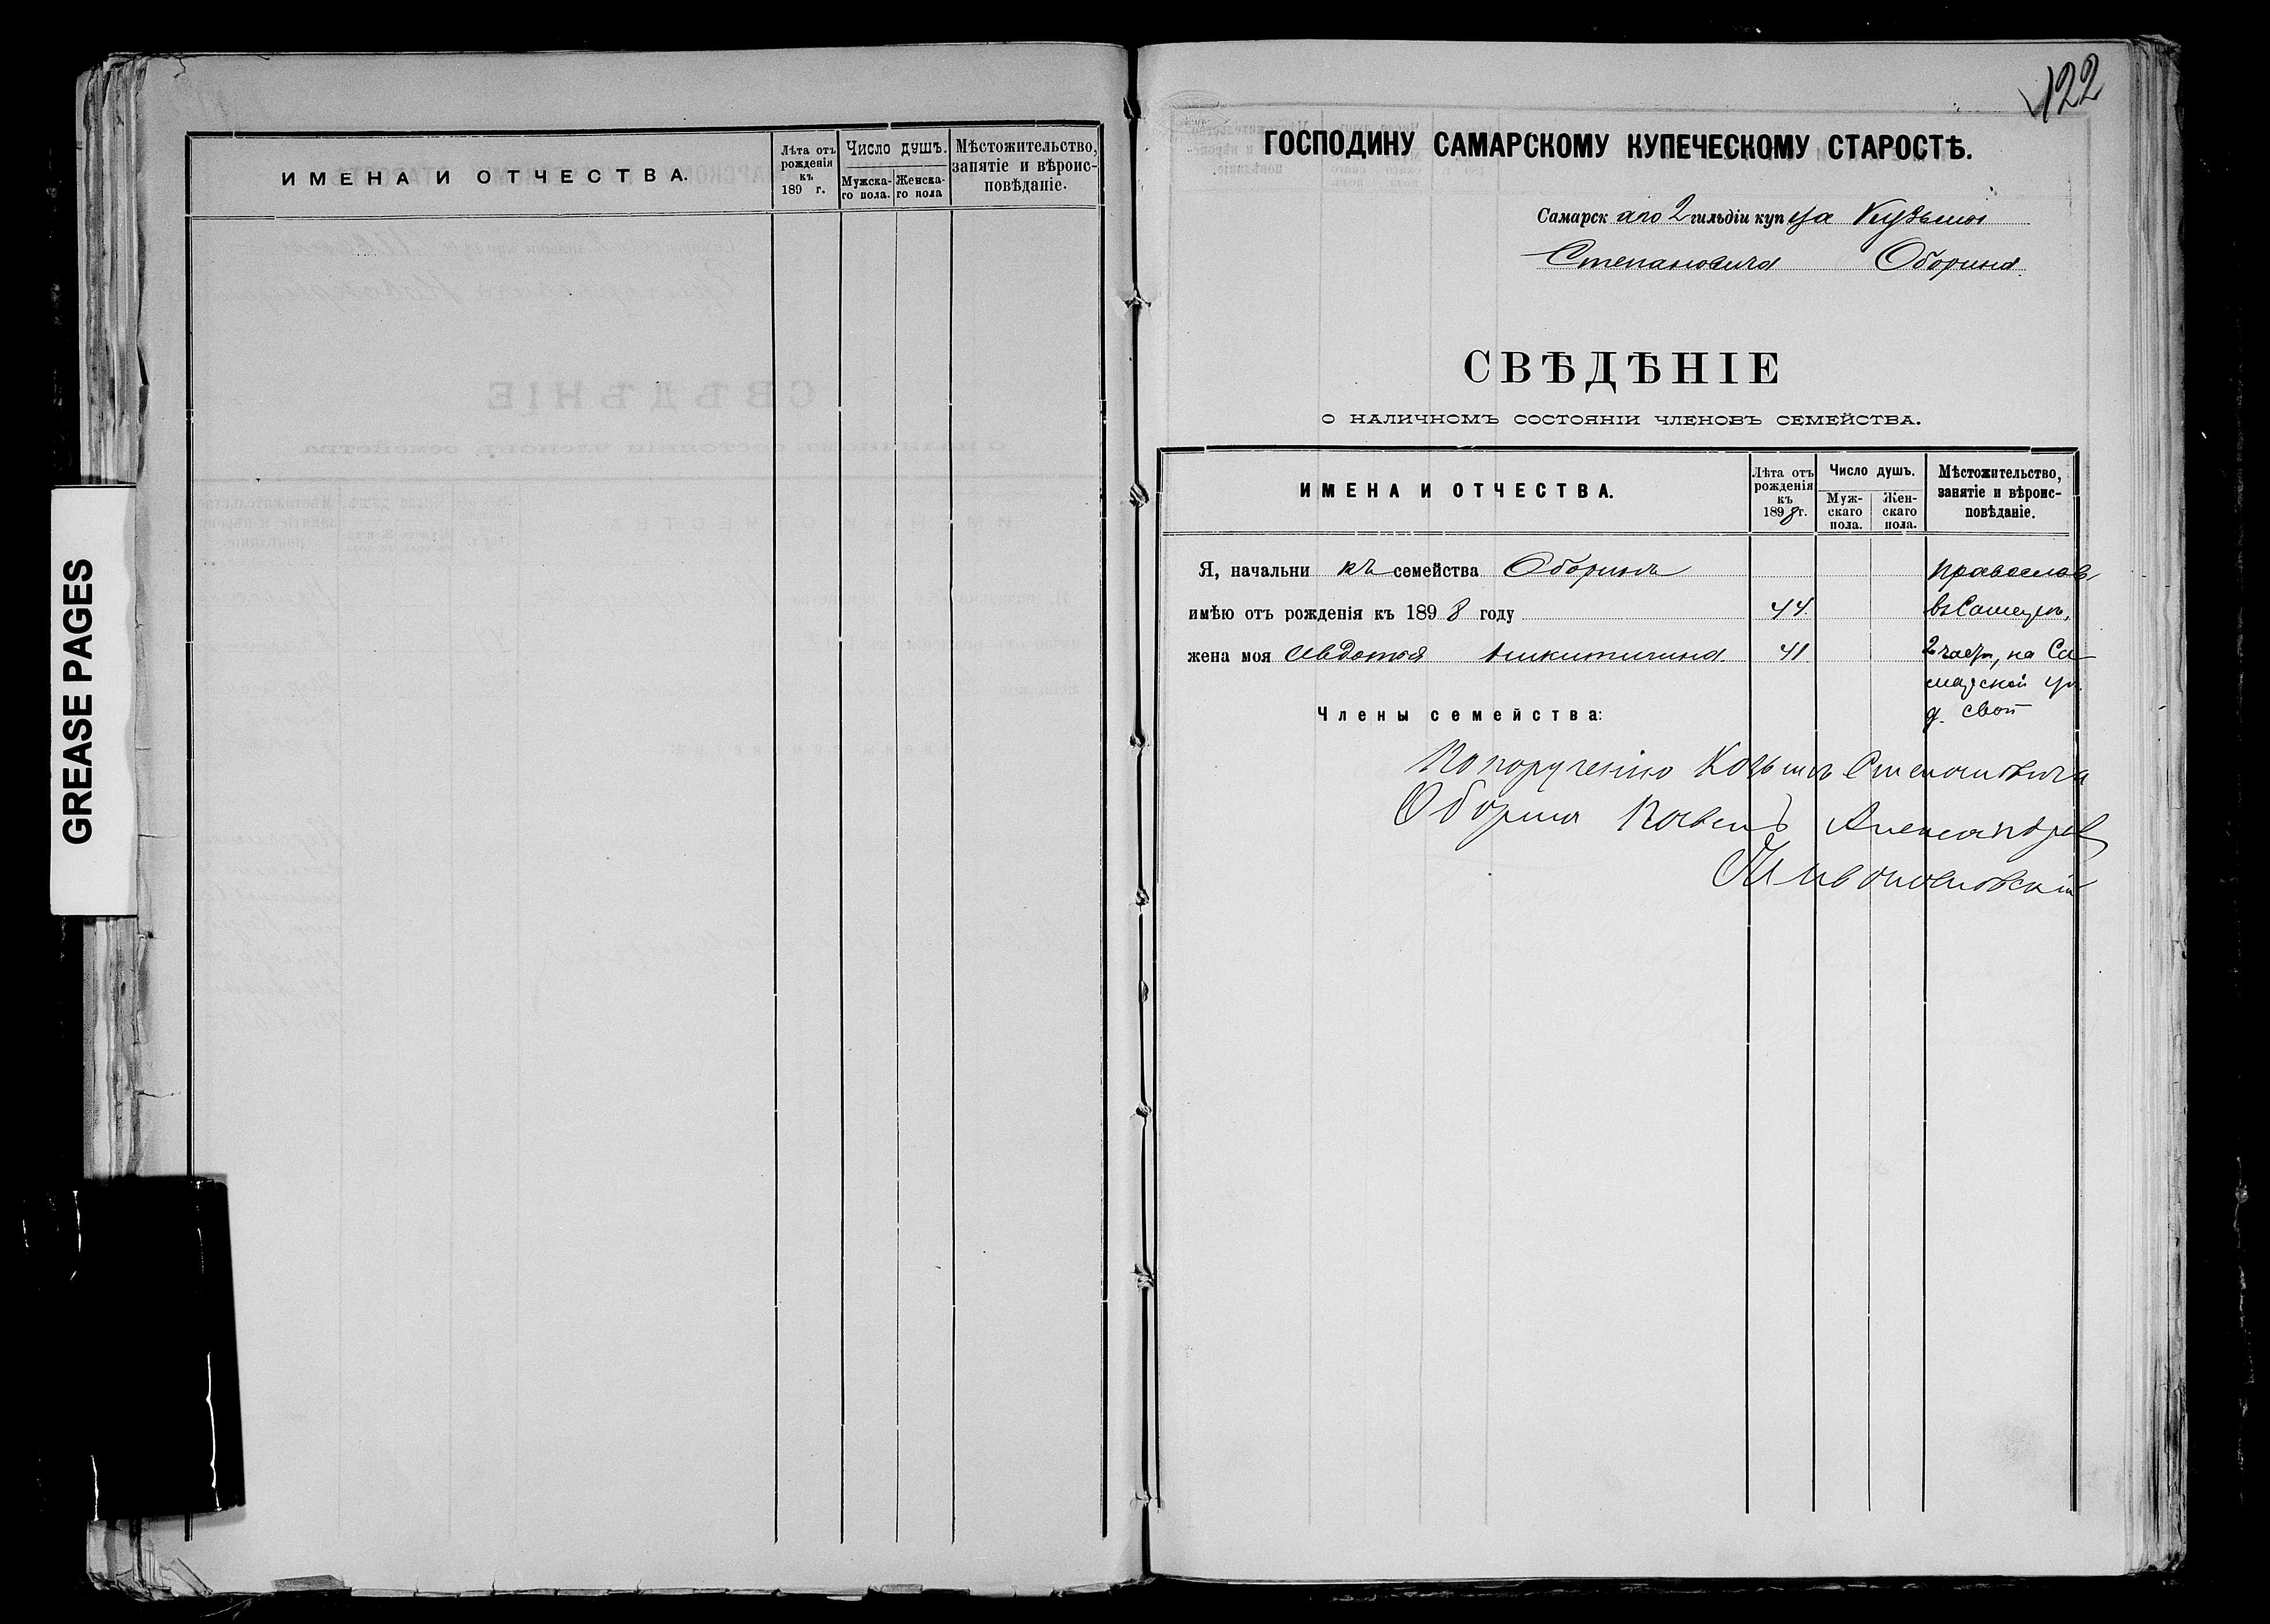 GREASE PAGES
ИМЕНА И ОТЧЕСТВА.
Лѣта отъ рожденія къ 189 г.
Число душъ.
Мужска-го пола.
Женска-го пола
Мѣстожительство, занятіе и вѣроис-повѣданіе.
122
ГОСПОДИНУ САМАРСКОМУ КУПЕЧЕСКОМУ СТАРОСТѢ.
Самарск аго 2 гильдіи купца Кузьмы
Степановича Оборина.
СВѢДѢНІЕ
О НАЛИЧНОМЪ СОСТОЯНІИ ЧЛЕНОВЪ СЕМЕЙСТВА.
ИМЕНА И ОТЧЕСТВА.
Лѣта отъ рожденія къ 1898 г.
Число душъ.
Муж-скаго пола.
Жен-скаго пола.
Мѣстожительство, занятіе и вѣроис-повѣданіе.
Я, начальникъ семейства Оборинъ православ
имѣю отъ рожденія къ 1898 году 44.
жена моя Авдотья Никитична. 41. 2 част, на Са
марской ул.
Члены семейства: д. свой
По порученію Козьмы Степановича
Оборина Павелъ Александров